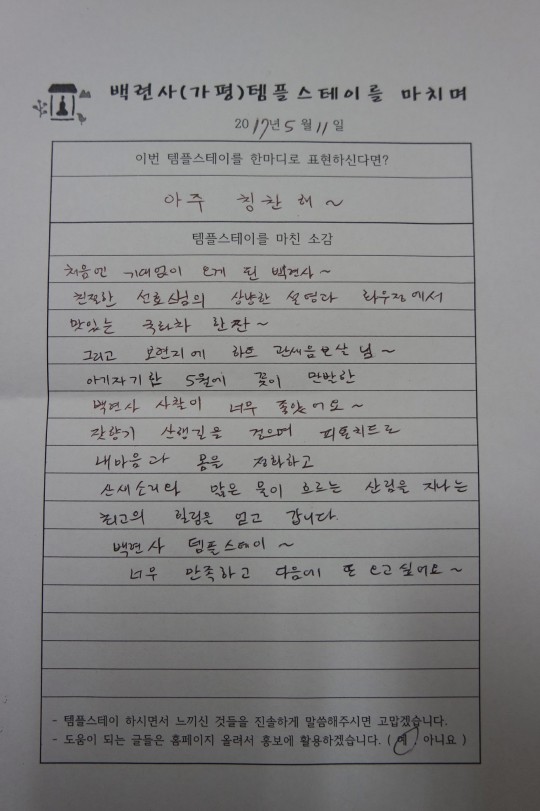 백련사(가평)템플스테이를 마치며
2017년 5월 11일
이번 템플스테이를 한마디로 표현하신다면?
아주 칭찬해~
템플스테이를 마친 소감
처음엔 기대없이 오게 된 백련사~
친절한 선효스님의 상냥한 설명과 다우정에서
맛있는 국화차 한잔~
그리고 보련지에 하트 관세음보살님~
아기자기한 5월에 꽃이 만반한
백련사 사찰이 너무 좋았어요~
잣향기 산행길을 걸으며 피톤치드로
내마음과 몸을 정화하고
산새소리와 맑은 물이 흐르는 산림을 지나는
최고의 힐링을 얻고 갑니다.
백련사 템플스테이~
너무 만족하고 다음에 또 오고싶어요~
- 템플스테이 하시면서 느끼신 것들을 진솔하게 말씀해주시면 고맙겠습니다.
- 도움이 되는 글들은 홈페이지 올려서 홍보에 활용하겠습니다. ( 예, 아니요 )